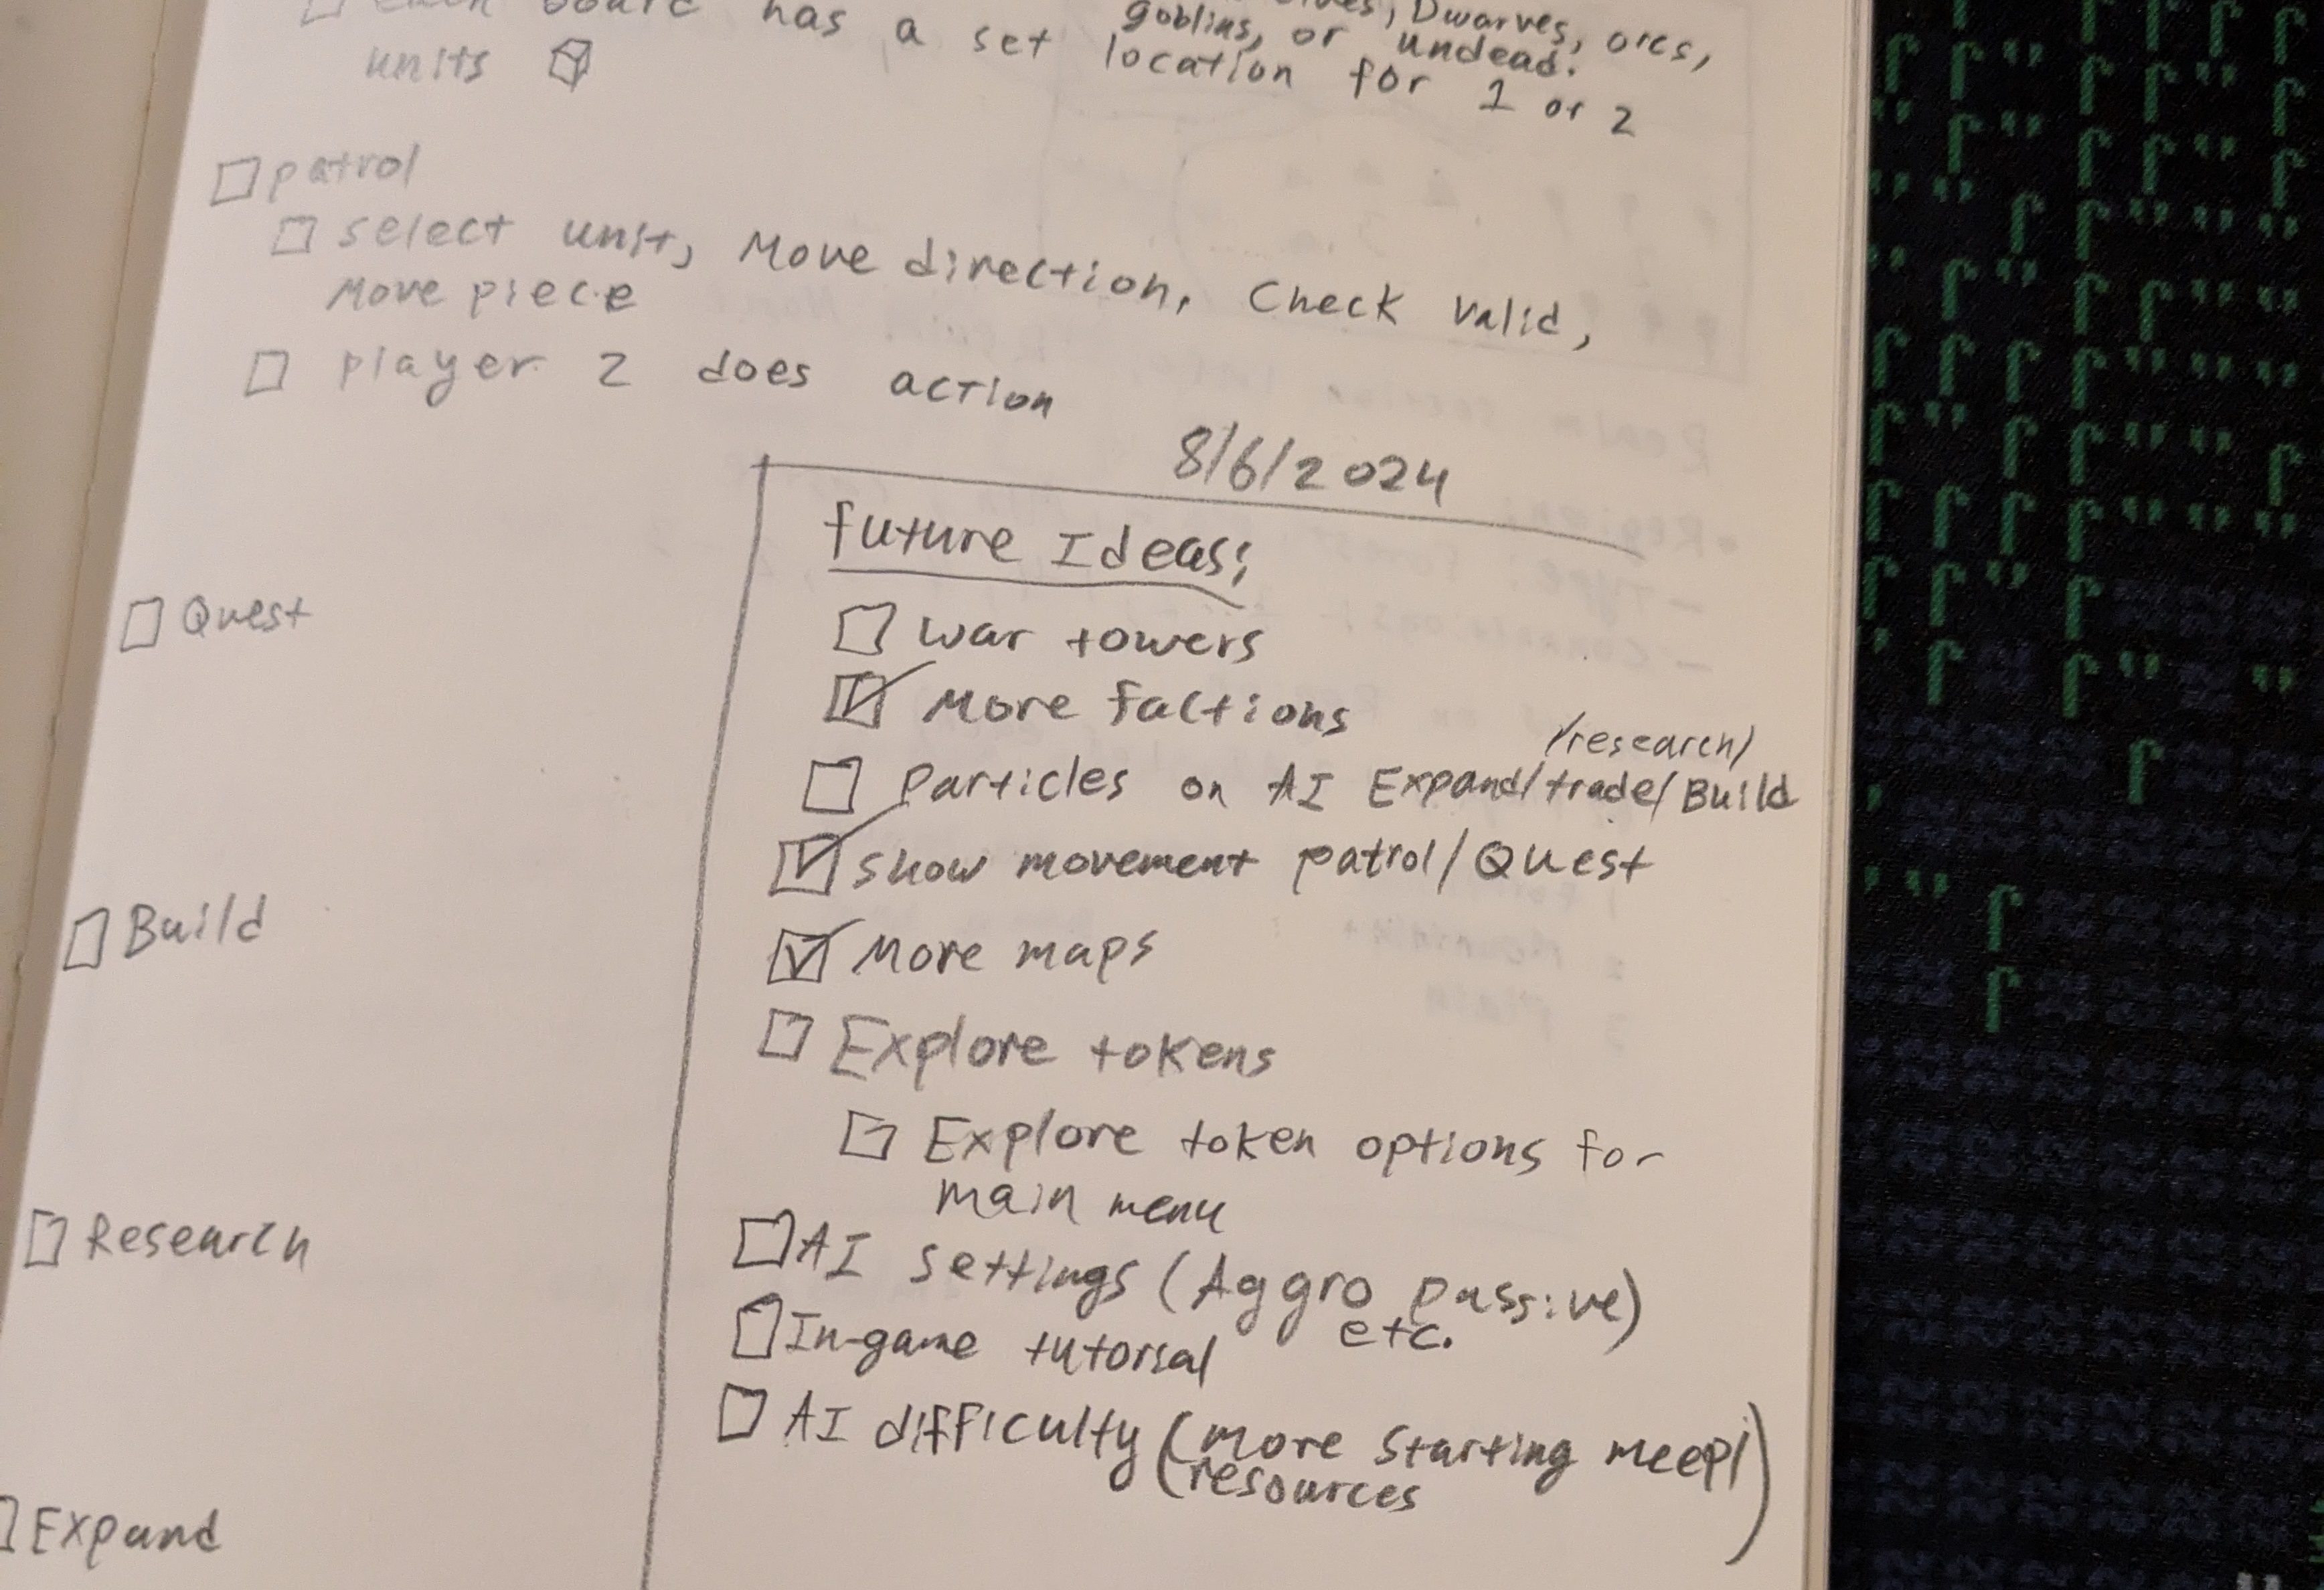 Dwarves, orcs,
goblins, or undead.
board has a set location for 1 or 2
units
patrol
select unit, Move direction, Check valid,
Move piece
player 2 does action
8/6/2024
future Ideas:
Quest
war towers
More factions
/research/
Particles on AI Expand/trade/Build
show movement patrol/Quest
Build
More maps
Explore tokens
Explore token options for
main menu
Research
AI settings (Aggro passive)
etc.
In-game tutorial
AI difficulty (more starting meepl
resources)
Expand